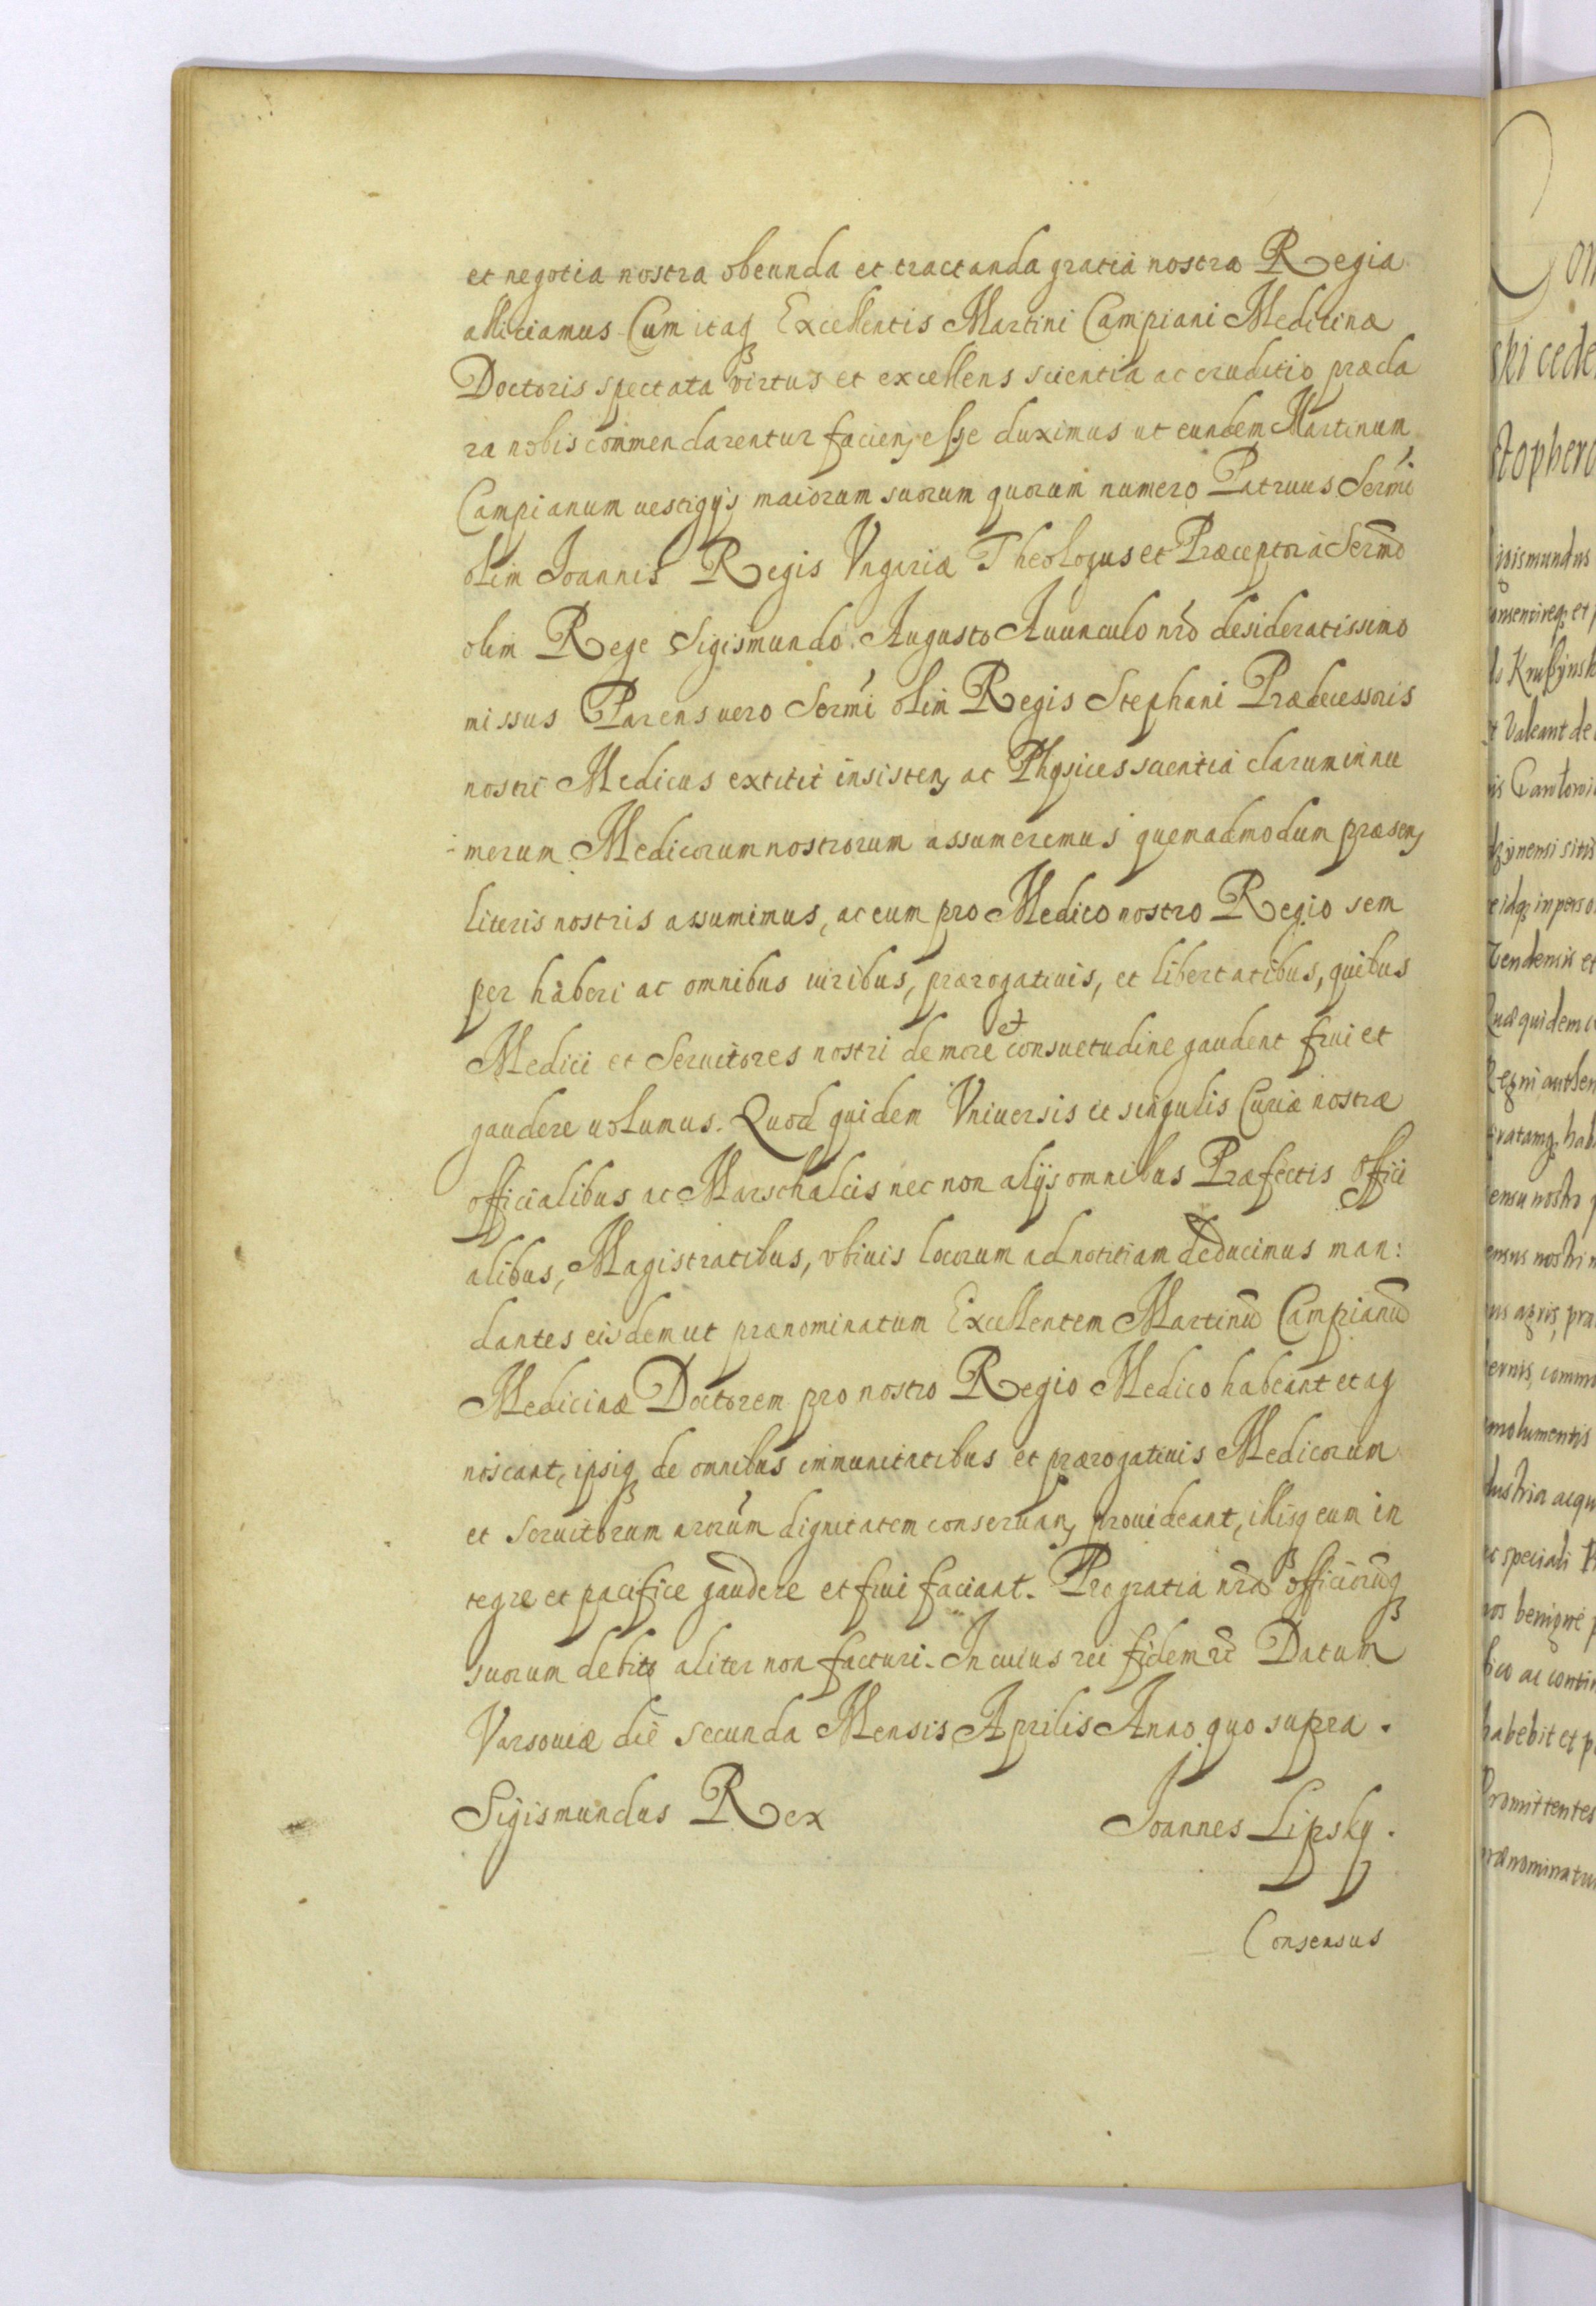 et negotia nostra obeunda et tractanda gratia nostra Regia
alliciamus Cum itaq Excellentis Martini Campiani Medicinæ
Doctoris spectata virtus et excellens scientia ac eruditio præcla
ra nobis commendarentur facien, esse duximus ut eundem Martinum
Campianum uestigijs maiorum suorum quorum numero Patruus Sermi
olim Joannis Regis Vngariæ Theologus et Præceptor à Sermo
olim Rege Sigismundo Augusto Auunculo nro desideratissimo
missus Parens uero Sermi olim Regis Stephani Prædecessoris
nostri Medicus extitit insisten, ac Physices scientia clarum in nu
merum Medicorum nostrorum assumeremus quemadmodum præsen,
literis nostris assumimus, ac eum pro Medico nostro Regio sem
per haberi ac omnibus iuribus, prærogatiuis, et libertatibus, quibus
Medici et Seruitores nostri de more et consuetudine gaudent frui et
gaudere uolumus. Quod quidem Vniuersis et singulis Curiæ nostræ
officialibus ac Marschalcis nec non alijs omnibus Præfectis Offici
alibus, Magistratibus, vbiuis locorum ad notitiam deducimus man:
dantes eisdem ut prænominatum Excellentem Martinu Campianu
Medicinæ Doctorem pro nostro Regio Medico habeant et ag
noscant, ipsiq de omnibus immunitatibus et prærogatiuis Medicorum
et Seruitorum nrorum dignitatem conseruan, prouideant, illisq eum in
tegre et pacifice gaudere et frui faciant. Pro gratia nra officioruq
suorum debito aliter non facturi. In cuius rei fidem rc Datum
Varsouiæ die secunda Mensis Aprilis Anno quo supra.
Sigismundus Rex
Joannes Lipsky.
Consensus